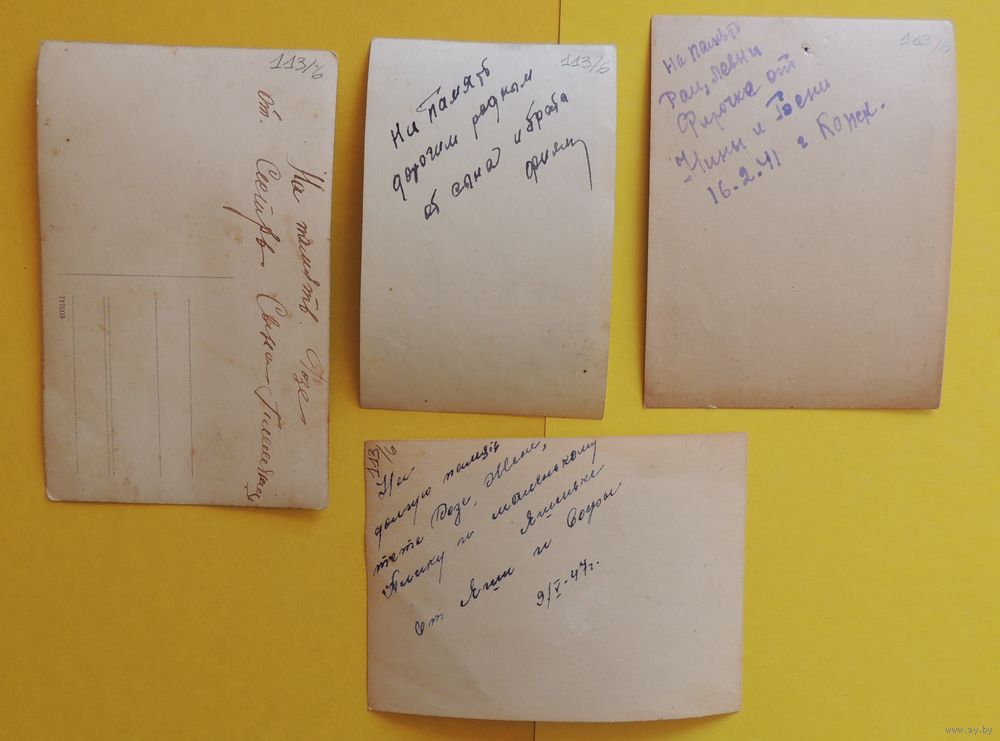 113/6
На память. Розе
от. Сестры
717003
113/6
На память
дорогим родным
от сына и брата
Фимы
113/6
На память
Раи, Левы и
Фирочке от
Нины и
16.2.41 г.
113/6
На
долгую память
тете Розе, Жене,
и маленькому
Яшеньке
от Яши и Доры
9/V-47г.
www.ay.by